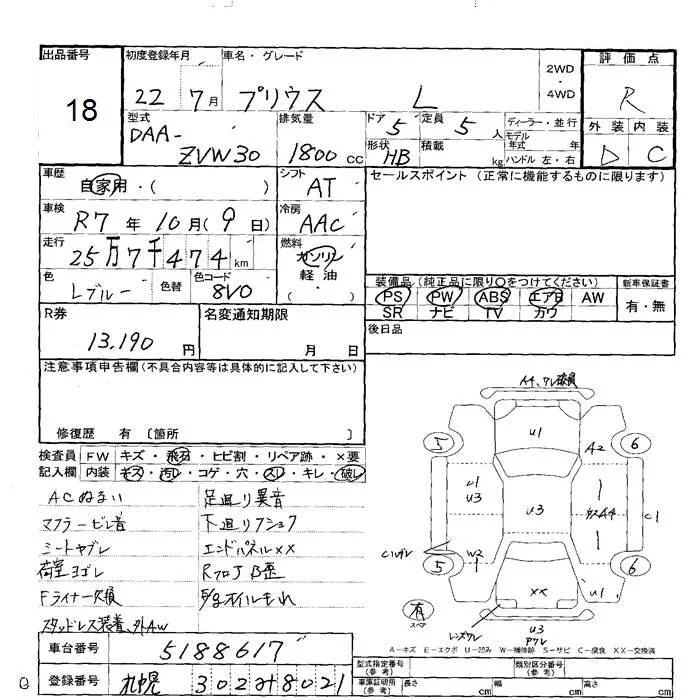 出品番号 初度登録年月 車名・グレード 2WD・4WD 評価点
18 22 7月 プリウス L R
型式 排気量 ドア 5 定員 5人 ディーラー・並行 外装 内装
DAA-ZVW30 1800cc 形状 HB 積載 kg モデル年式 年 ハンドル 左・右 D C
車歴 シフト セールスポイント (正常に機能するものに限ります)
自家用・( ) AT
車検 冷房
R7年10月(9日) AAC
走行 燃料
25万7千474km ガソリン
軽油
( ・ )
色 Lブルー 色替 色コード 8V0
装備品(純正品に限り○をつけてください) 新車保証書
PS PW ABS エアB AW 有・無
SR ナビ TV カワ
R券 名変通知期限 後日品
13,190円 月 日
注意事項申告欄(不具合内容等は具体的に記入して下さい)
修復歴 有 〔箇所 〕
検査員 FW キズ・飛石・ヒビ割・リペア跡・×要
記入欄 内装 キズ・汚レ・コゲ・穴・スレ・キレ・破レ
ACぬるい 足廻り異音
マフラービレ音 下廻りフショク
シートヤブレ エンドパネルXX
荷室ヨゴレ
Fライナー欠損
スタッドレス装着、外AW
車台番号 5188617
登録番号 札幌
A4、ワレ破損
U1
5 6
A2
U1
U3
U3
A4
C1
W2
1
5 6
XX
U1
有
スペア
U3
ワレ
A-キズ E-エクボ U-凹み W-補修跡 S-サビ C-腐食 XX-交換済
型式指定番号(参考) 類別区分番号(参考)
車庫証明用(参考) 長さ cm 幅 cm 高さ cm